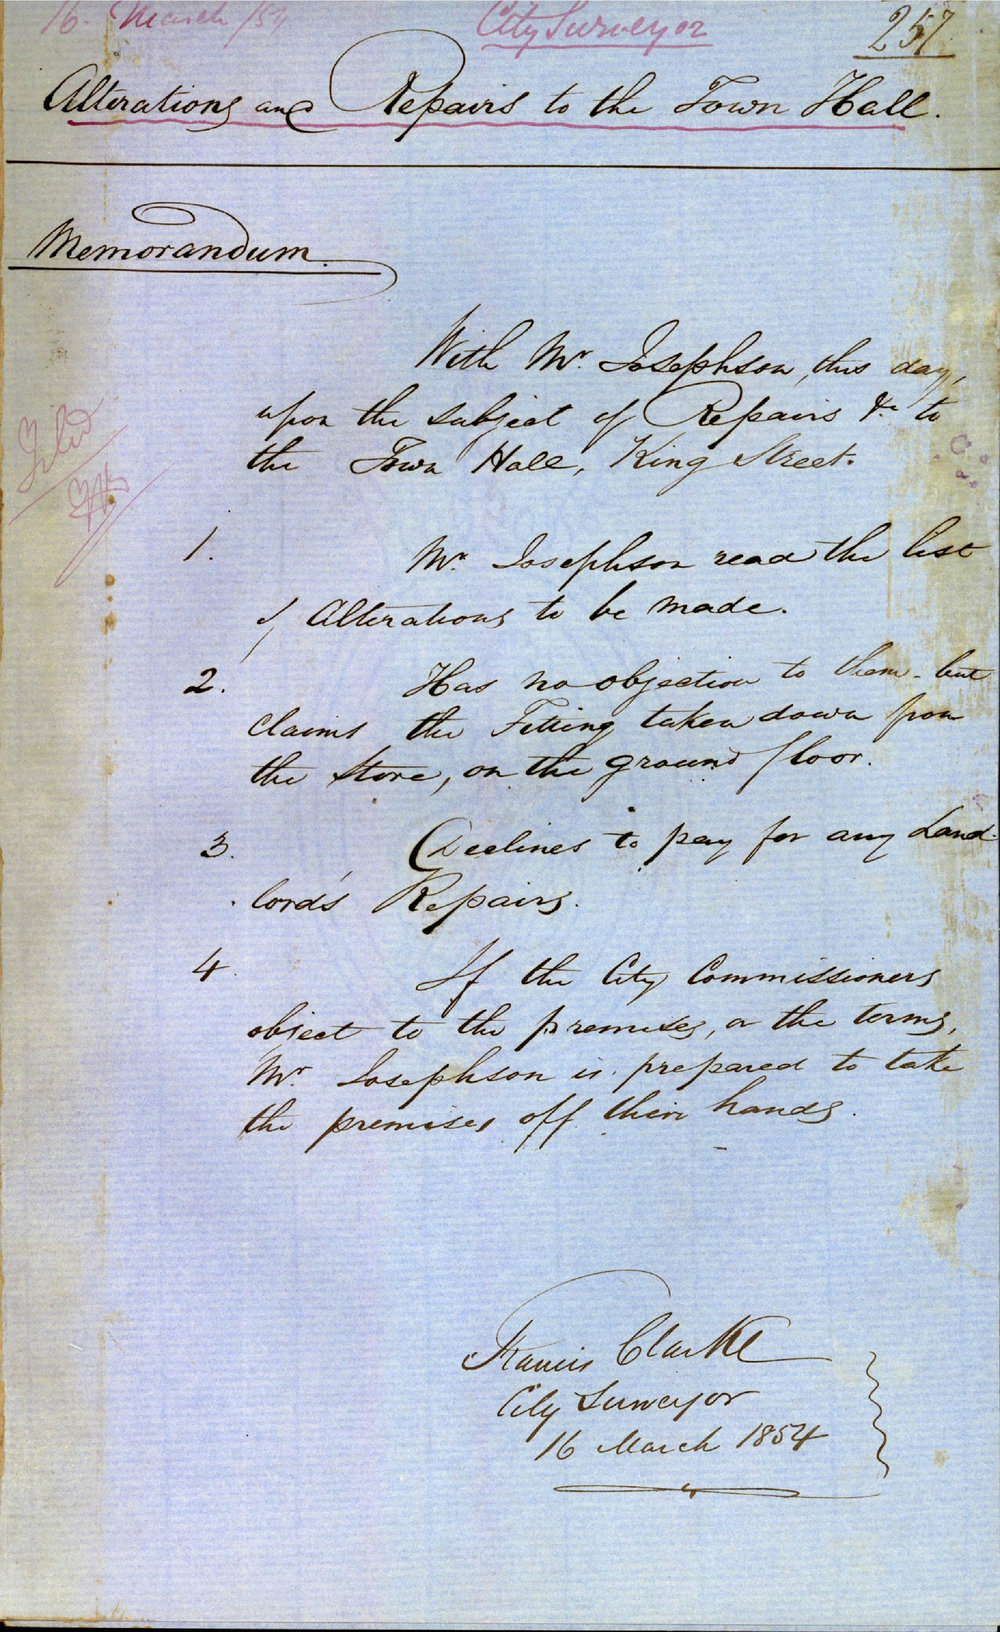 16 March /54
City Surveyor
257
Alterations and Repairs to the Town Hall.
Memorandum.
With Mr. Josephson, this day,
upon the subject of Repairs &c to
the Town Hall, King Street.
Filed
1. Mr. Josephson read the list
of Alterations to be made.
2. Has no objection to them - but
claims the Fitting taken down from
the Store, on the ground floor.
3. Declines to pay for any Land-
lord's Repairs.
4 If the City Commissioners
object to the premises, or the terms,
Mr. Josephson is prepared to take
the premises off their hands.
Francis Clarke
City Surveyor
16 March 1854